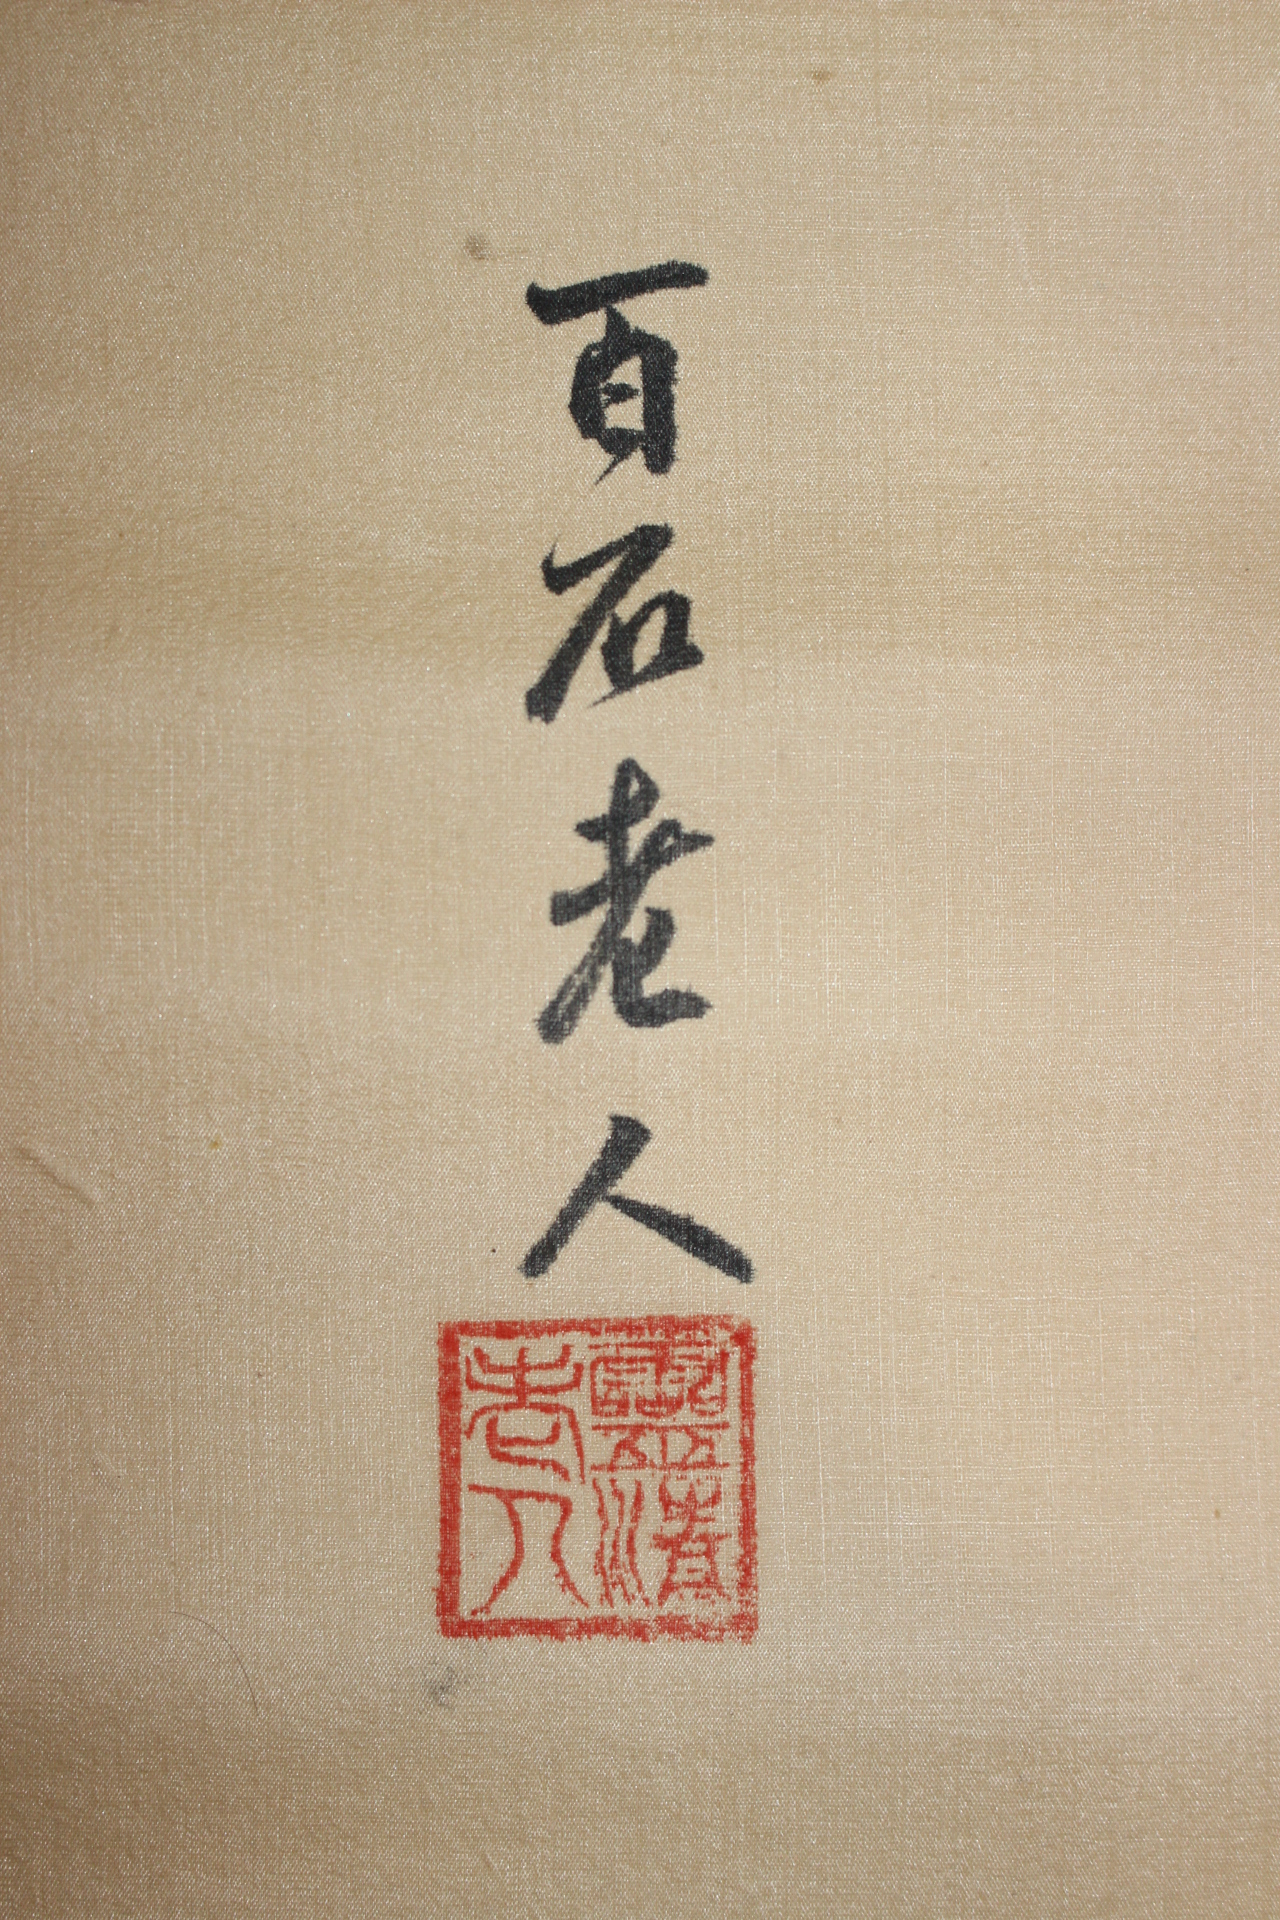 百石老人
老人